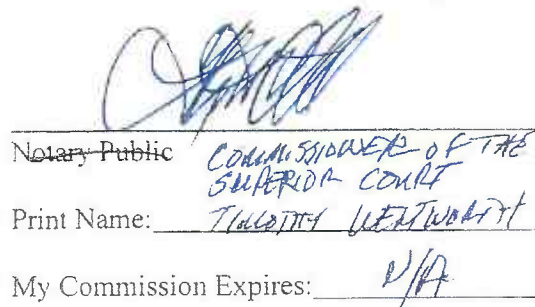 Notary Public COMMISSIONER OF THE
SUPERIOR COURT
Print Name: TIMOTHY WENTWORTH
My Commission Expires: N/A